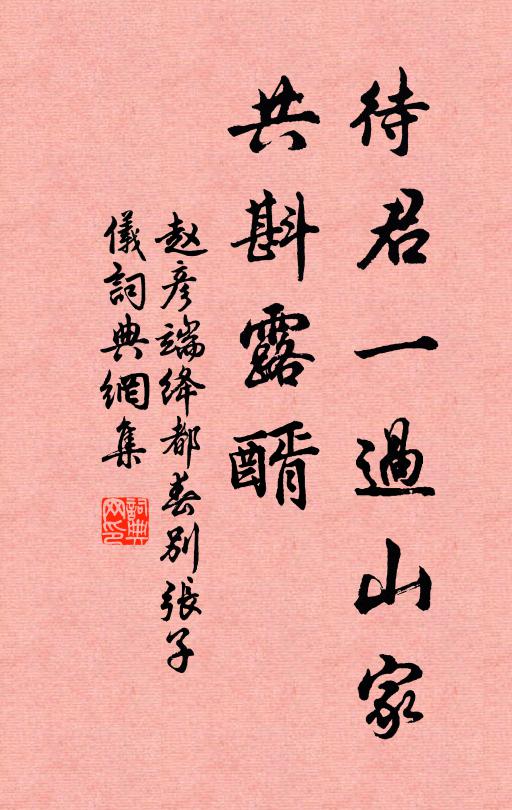 待君一過山家
共斟露醑
赵彦端绛都春别張子
儀詞典網集
詞典
网印